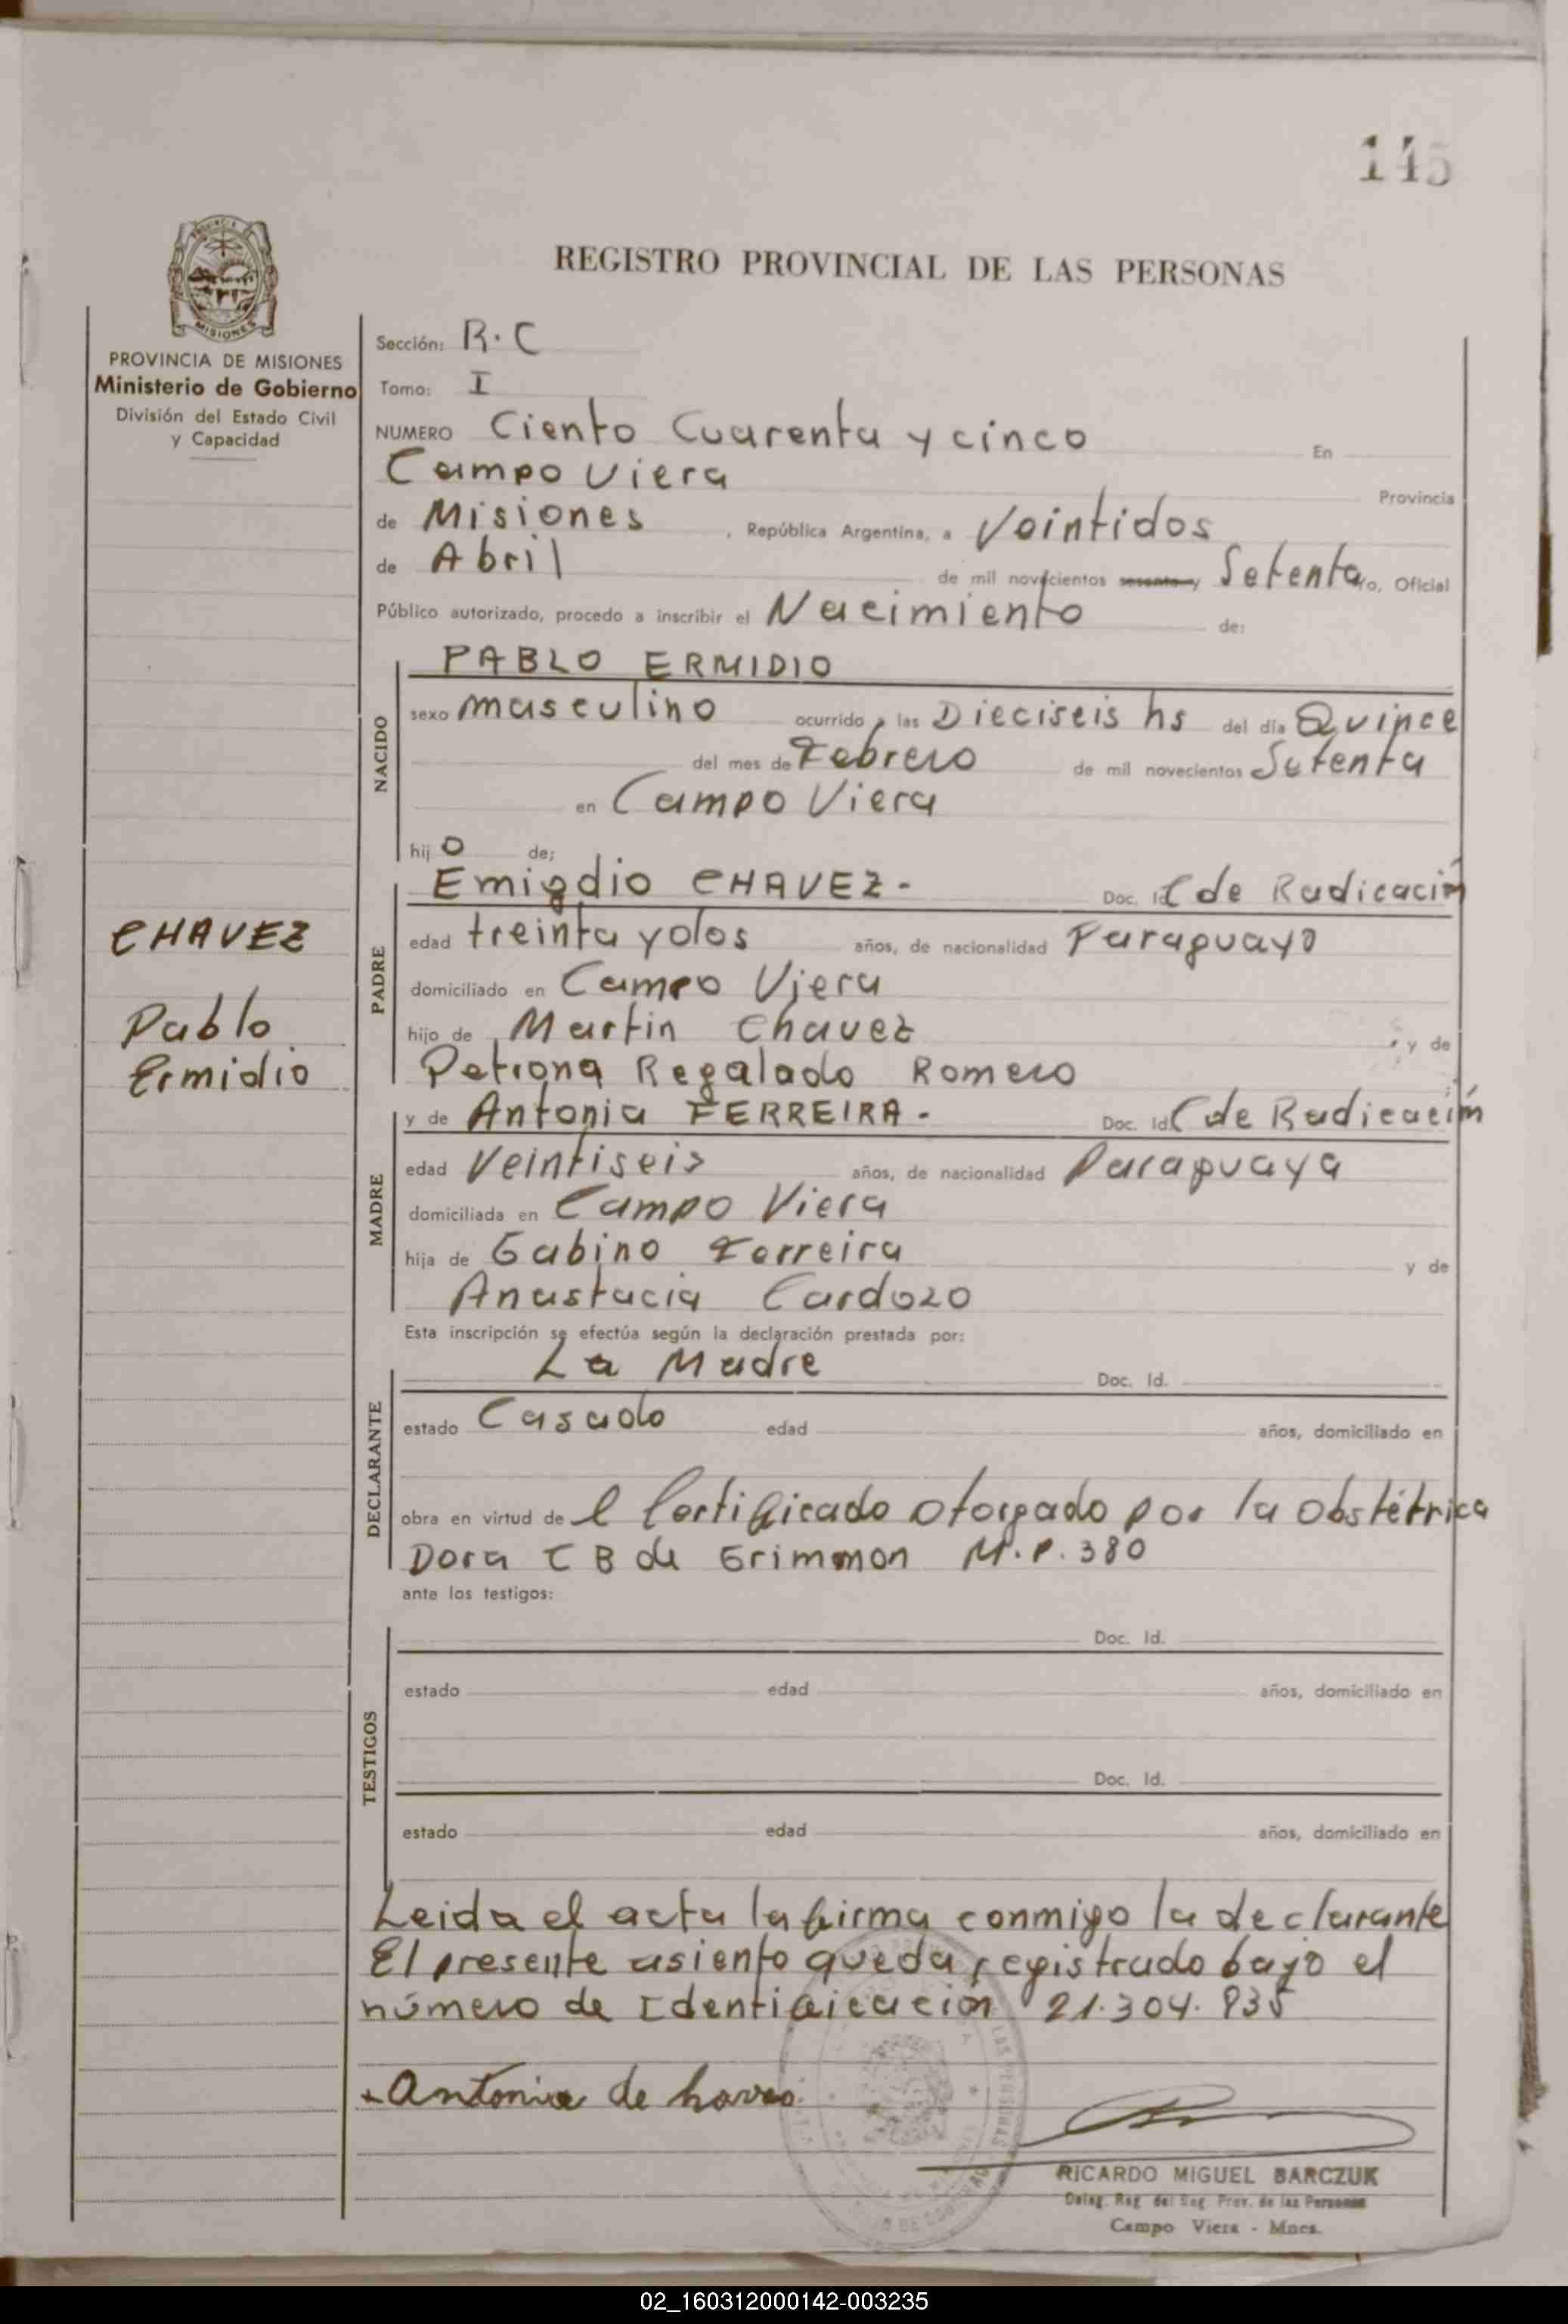 145
REGISTRO PROVINCIAL DE LAS PERSONAS
MISIONES
PROVINCIA DE MISIONES
Ministerio de Gobierno
División del Estado Civil
y Capacidad
Sección: R.C
Tomo: I
NUMERO Ciento Cuarenta y cinco En
Campo Viera Provincia
de Misiones, República Argentina, a Veintidos
de Abril de mil novecientos sesenta y Setenta yo, Oficial
Público autorizado, procedo a inscribir el Nacimiento de:
NACIDO
PABLO ERMIDIO
sexo masculino ocurrido a las Dieciseis hs del día Quince
del mes de Febrero de mil novecientos Setenta
en Campo Viera
hijo de:
PADRE
Emigdio CHAVEZ - Doc. Id. C de Radicación
edad treinta y dos años, de nacionalidad Paraguayo
domiciliado en Campo Viera
hijo de Martin Chavez y de
Petrona Regalado Romero
CHAVEZ
Pablo
Ermidio
MADRE
y de Antonia FERREIRA - Doc. Id. C de Radicación
edad Veintiseis años, de nacionalidad Paraguaya
domiciliada en Campo Viera
hija de Gabino Ferreira y de
Anastacia Cardozo
Esta inscripción se efectúa según la declaración prestada por:
DECLARANTE
La Madre Doc. Id.
estado Casado edad años, domiciliado en
obra en virtud de l Certificado otorgado por la Obstétrica
Dora C B de Grimmon M.P. 380
ante los testigos:
TESTIGOS
Doc. Id.
estado edad años, domiciliado en
Doc. Id.
estado edad años, domiciliado en
Leida el acta la firma conmigo la declarante
El presente asiento queda registrado bajo el
número de Identificación 21.304.935
Antonia de
RICARDO MIGUEL BARCZUK
Deleg. Reg. del Reg. Prov. de las Personas
Campo Viera - Mnes.
02_160312000142-003235